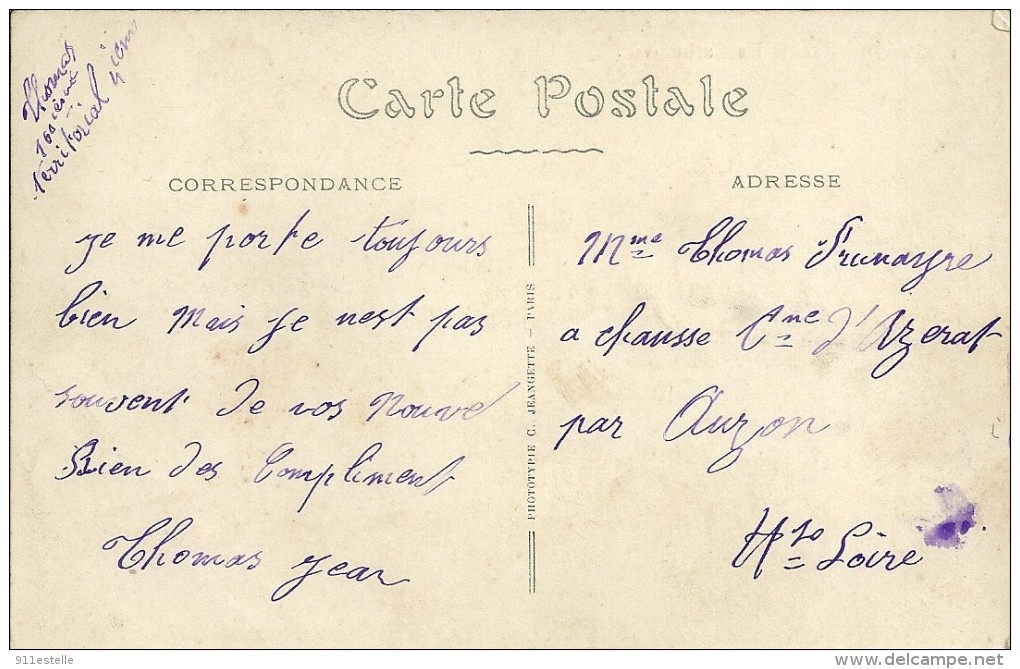 Thomas
100 ième
territorial
Carte Postale
CORRESPONDANCE
je me porte toujours
bien mais je nest pas
souvent de vos nouve
Bien des Compliment
Thomas jean
PHOTOTYPIE C. JEANGETTE — PARIS
ADRESSE
Mme Thomas Prunayre
a chausse Cne d'Azerat
par Auzon
Hte Loire
911estelle
www.delcampe.net